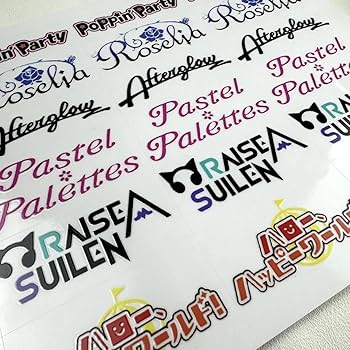 in' Party Poppin' Party Poppin' Party
Roselia Roselia Roselia
Afterglow Afterglow Afterglow
Pastel Palettes
Pastel Palettes
Pastel Palettes
RAISE A SUILEN
RAISE A SUILEN
ハロー、
ハッピーワールド!
ハロー、
ワールド!